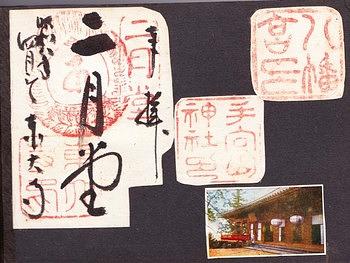 奉拝
二月堂
東大寺
二月堂
八幡
宮印
手向山
神社印